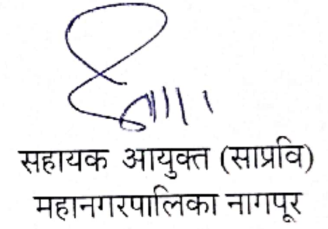 सहायक आयुक्त (साप्रवि)
महानगरपालिका नागपूर